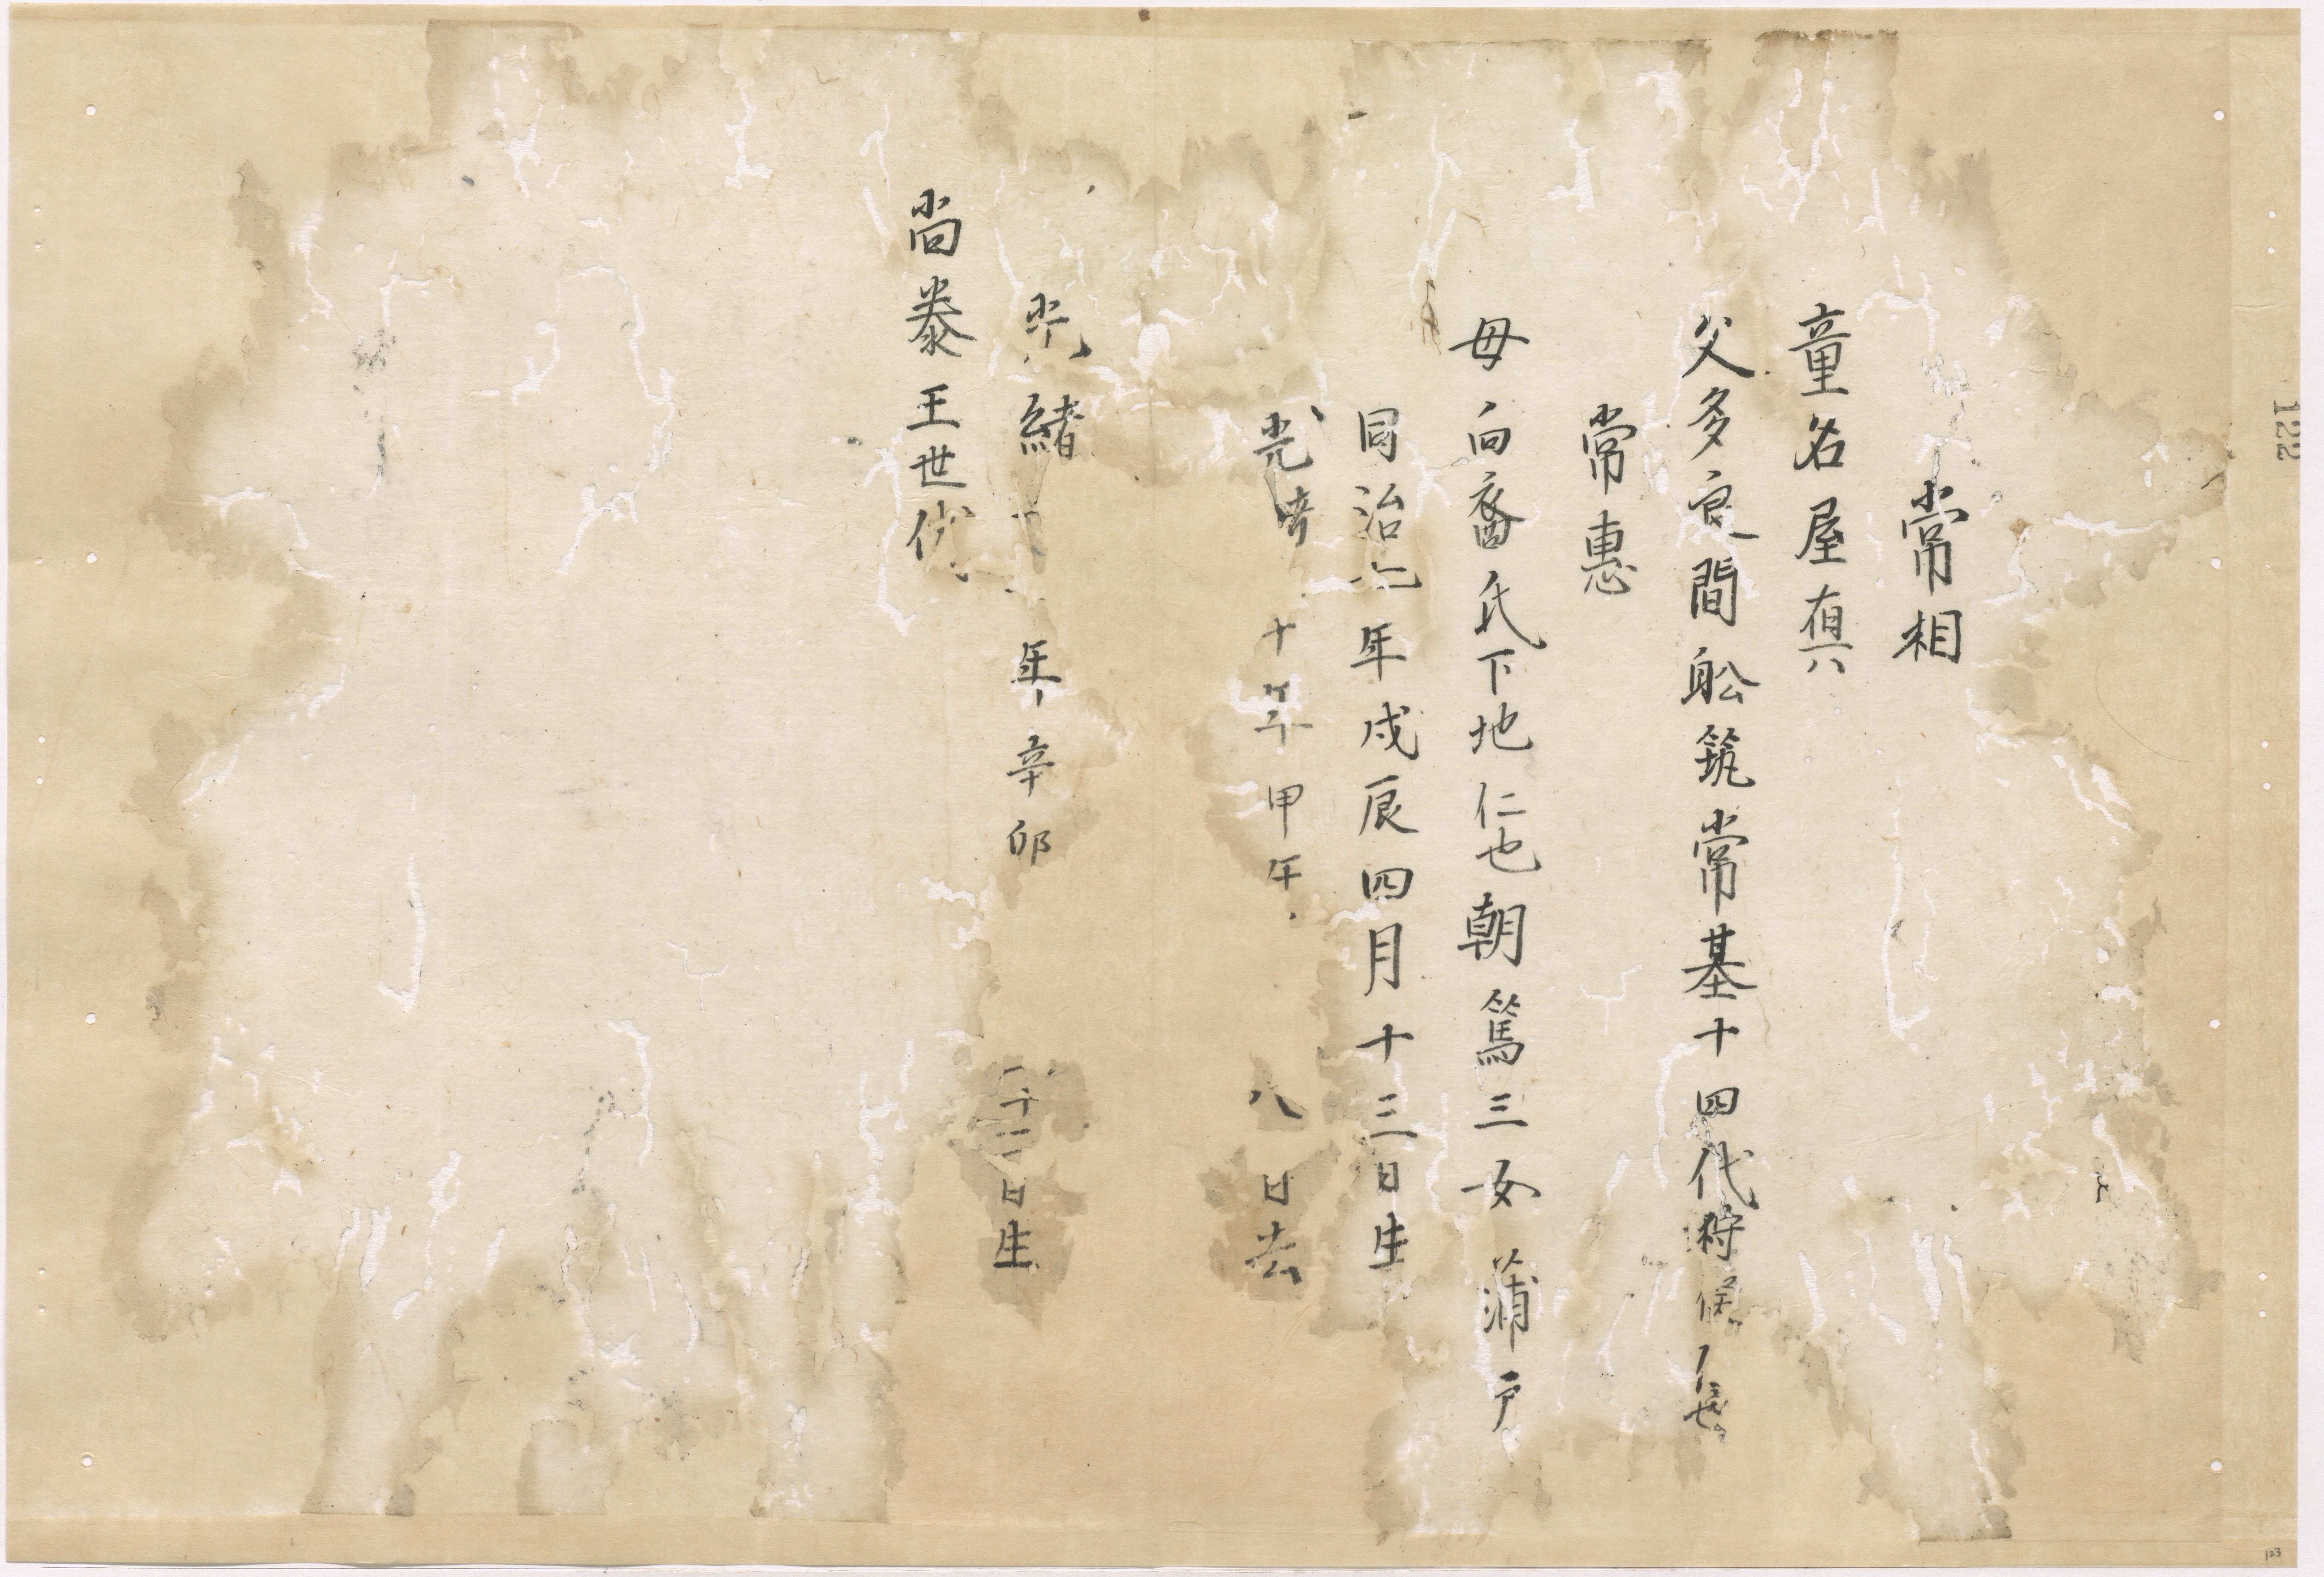 常相
童名屋真六
父多良間舩筑常基十四代狩俣
常惠
母向裔氏下地仁也朝篤三女蒲戸
同治七年戊辰四月十三日生
光緒十年甲午 八日去
光緒 年辛卯 二十二日生
尚泰王世代
122
123